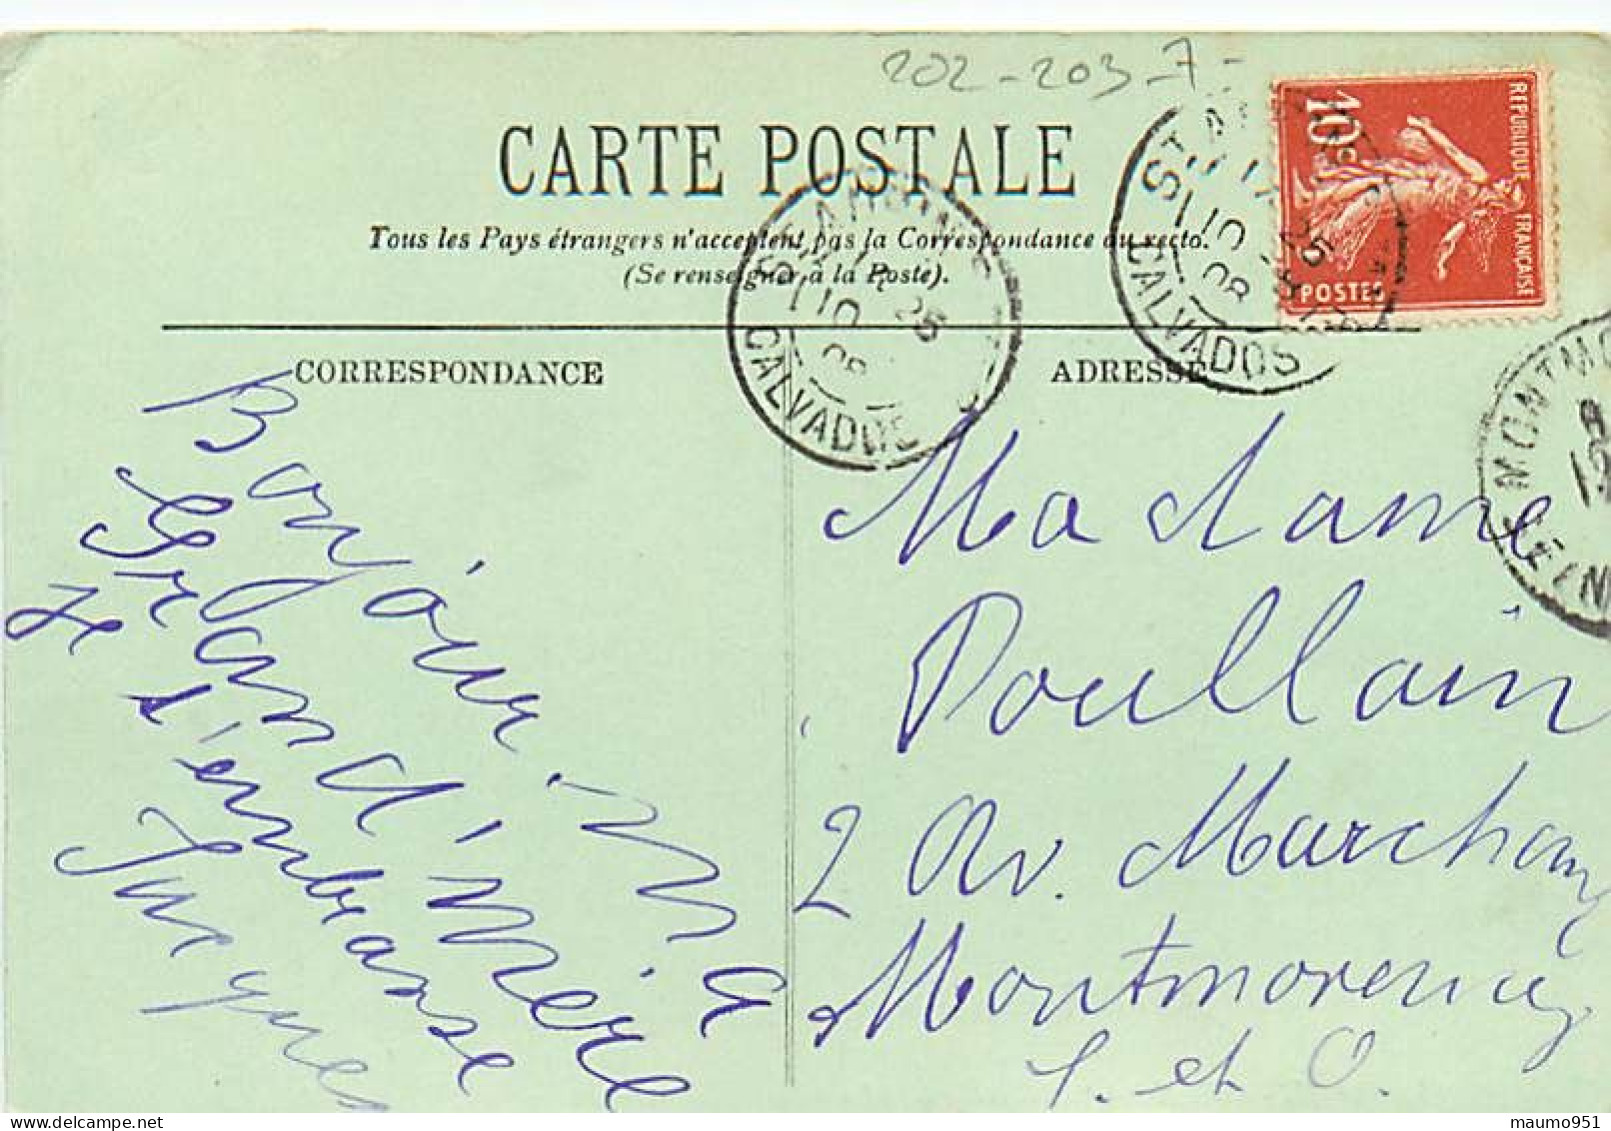 202-203-7-
CARTE POSTALE
Tous les Pays étrangers n'acceptent pas la Correspondance au recto.
(Se renseigner à la Poste).
CORRESPONDANCE
ADRESSE
REPUBLIQUE FRANÇAISE
10c
POSTES
CALVADOS
25
08
CALVADOS
25
08
MONTMO
Bonjour Ma
Grand'mère
Je t'embrasse
Jacques
Madame
Poullain
2 Av. Marchang
Montmorency
S. et O.
maumo951